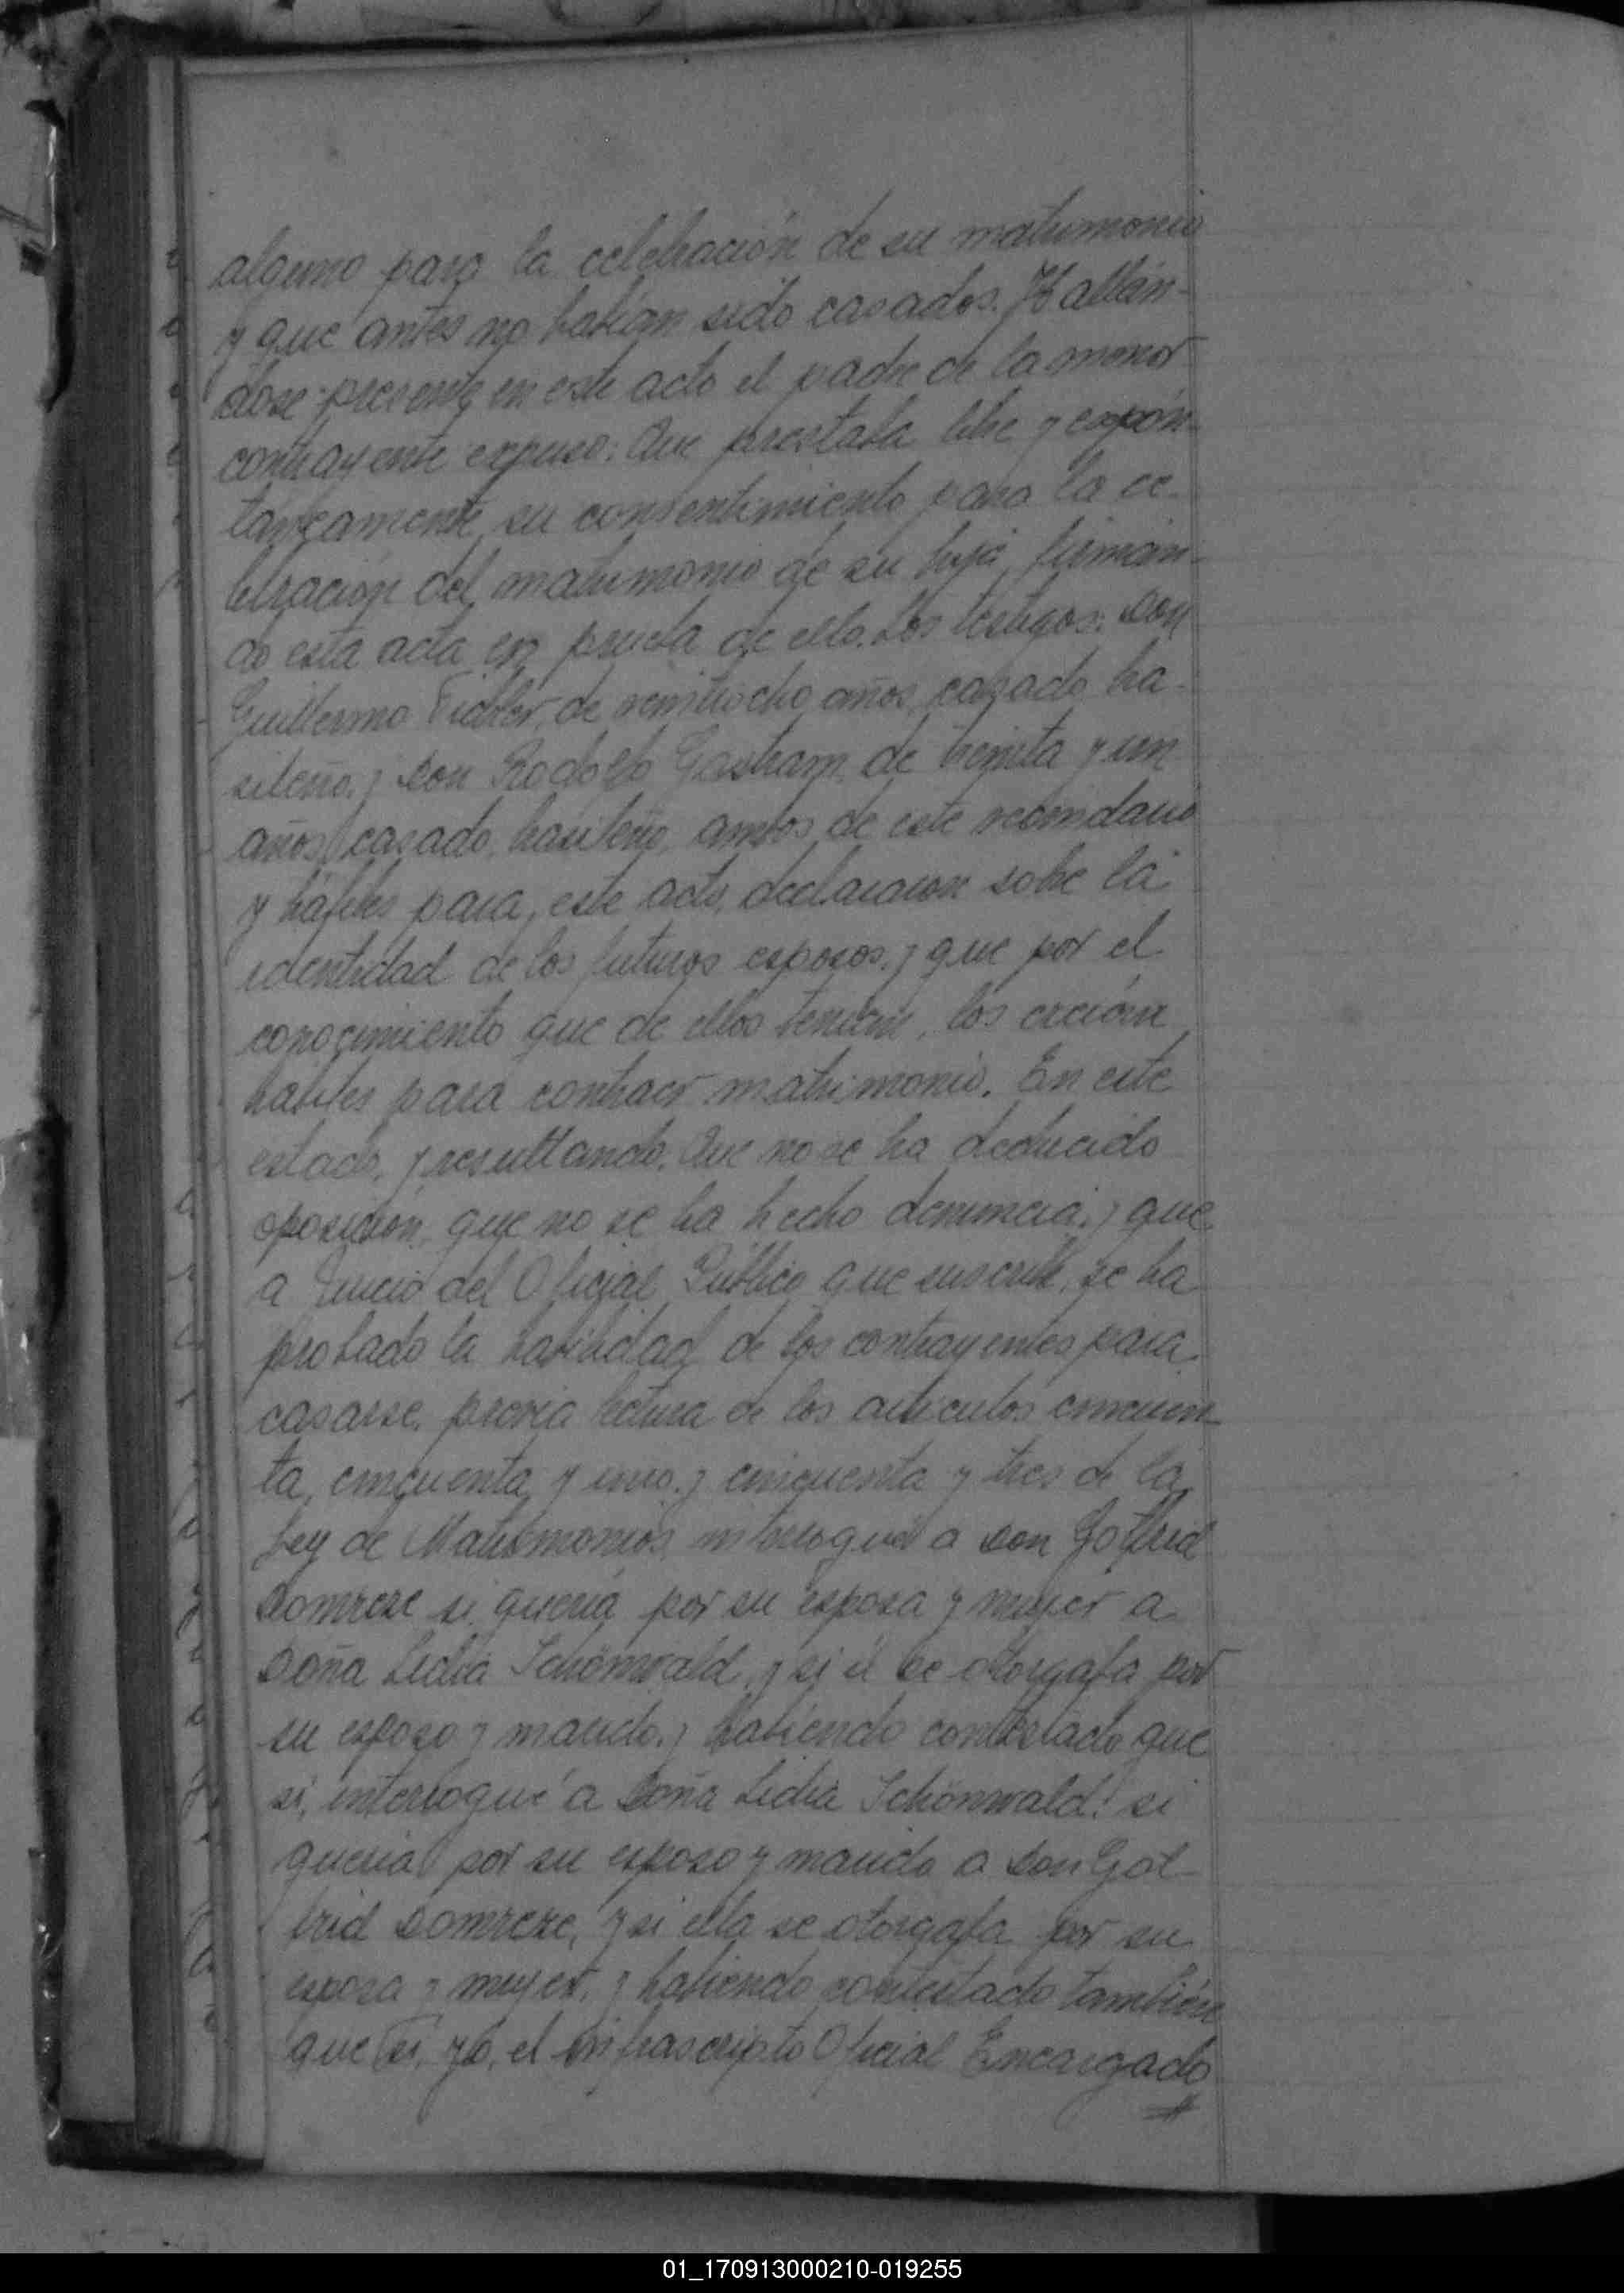 alguno para la celebración de su matrimonio
y que antes no habían sido casados. Hallán-
dose presente en este acto el padre de la menor
contrayente expuso: Que prestaba libre y expón-
taneamente su consentimiento para la ce-
lebración del matrimonio de su hija, firman-
do esta acta en prueba de ello. Los testigos: Don
Guillermo Fidler, de veintiocho años, casado, bra-
sileño, y Don Rodolfo de treinta y un
años, casado, brasileño, ambos de este vecindario
y hábiles para este acto, declararon sobre la
identidad de los futuros esposos, y que por el
conocimiento que de ellos tenían, los creían
habiles para contraer matrimonio. En este
estado, y resultando: Que no se ha deducido
oposición, que no se ha hecho denuncia, y que
a juicio del Oficial Público que suscribe, se ha
probado la habilidad de los contrayentes para
casarse, previa lectura de los articulos cincuen-
ta, cincuenta y uno, y cincuenta y tres de la
Ley de Matrimonios, interrogué a Don Gotfrid
Domrese si quería por su esposa y mujer a
Doña Lidia Schönwald, y si él se otorgaba por
su esposo y marido, y habiendo contestado que
si, interrogué a Doña Lidia Schönwald: si
quería por su esposo y marido a Don Got-
frid Domrese, y si ella se otorgaba por su
esposa y mujer, y habiendo contestado también
que si, yo, el infrascripto Oficial Encargado